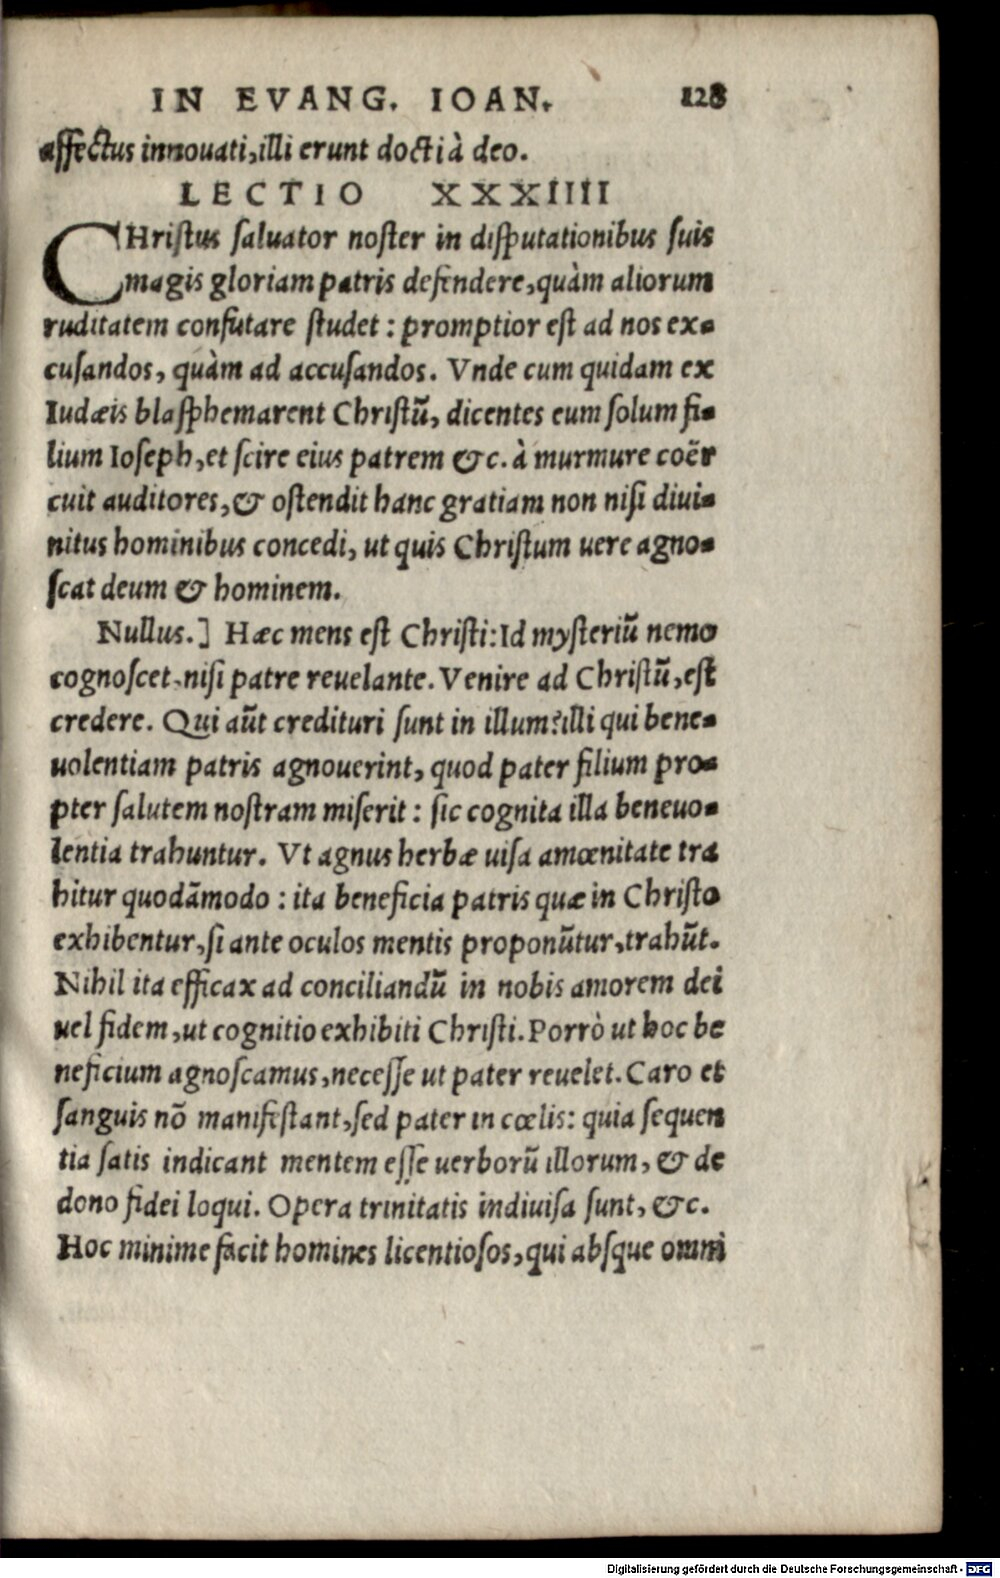 IN EVANG. IOAN. 128
affectus innouati, illi erunt docti à deo.
LECTIO XXXIIII
CHristus saluator noster in disputationibus suis
magis gloriam patris defendere, quàm aliorum
ruditatem confutare studet : promptior est ad nos ex-
cusandos, quàm ad accusandos. Vnde cum quidam ex
Iudæis blasphemarent Christũ, dicentes eum solum fi-
lium Ioseph, et scire eius patrem &c. à murmure coër
cuit auditores, & ostendit hanc gratiam non nisi diui-
nitus hominibus concedi, ut quis Christum uere agno-
scat deum & hominem.
Nullus.] Hæc mens est Christi: Id mysteriũ nemo
cognoscet, nisi patre reuelante. Venire ad Christũ, est
credere. Qui aũt credituri sunt in illum? illi qui bene-
uolentiam patris agnouerint, quod pater filium pro-
pter salutem nostram miserit : sic cognita illa beneuo-
lentia trahuntur. Vt agnus herbæ uisa amœnitate tra
hitur quodãmodo : ita beneficia patris quæ in Christo
exhibentur, si ante oculos mentis proponũtur, trahũt.
Nihil ita efficax ad conciliandũ in nobis amorem dei
uel fidem, ut cognitio exhibiti Christi. Porrò ut hoc be
neficium agnoscamus, necesse ut pater reuelet. Caro et
sanguis nõ manifestant, sed pater in cœlis: quia sequen
tia satis indicant mentem esse uerborũ illorum, & de
dono fidei loqui. Opera trinitatis indiuisa sunt, &c.
Hoc minime facit homines licentiosos, qui absque omni
Digitalisierung gefördert durch die Deutsche Forschungsgemeinschaft - DFG